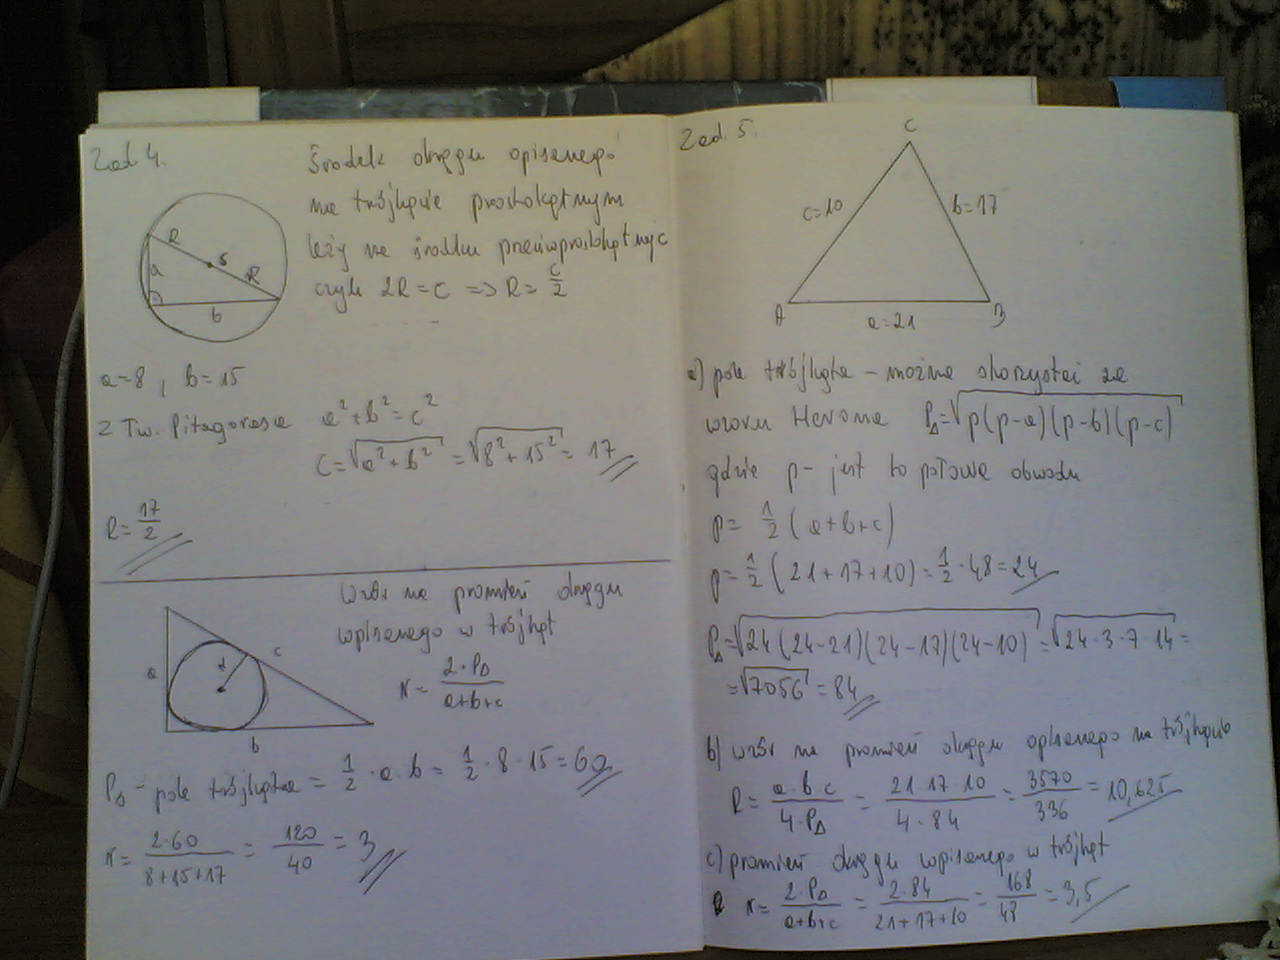 Zad 4.
Środek okręgu opisanego
na trójkącie prostokątnym
leży na środku przeciwprostokątnej
czyli 2R = c => R = c/2
R
S
R
a
b
a=8, b=15
z Tw. Pitagorasa a² + b² = c²
c = √(a² + b²) = √(8² + 15²) = 17
R = 17/2
wzór na promień okręgu
wpisanego w trójkąt
r = 2·P△/(a+b+c)
a
r
c
b
P△ - pole trójkąta = 1/2 · a · b = 1/2 · 8 · 15 = 60
r = 2·60/(8+15+17) = 120/40 = 3
Zad. 5.
C
c=10
b=17
A
B
a=21
a) pole trójkąta – można skorzystać ze
wzoru Herona P△ = √(p(p-a)(p-b)(p-c))
gdzie p- jest to połowa obwodu
p = 1/2 (a+b+c)
p = 1/2 (21+17+10) = 1/2 · 48 = 24
P△ = √(24(24-21)(24-17)(24-10)) = √(24·3·7·14) =
= √7056 = 84
b) wzór na promień okręgu opisanego na trójkącie
R = a·b·c/(4·P△) = 21·17·10/(4·84) = 3570/336 = 10,625
c) promień okręgu wpisanego w trójkąt
r = 2·P△/(a+b+c) = 2·84/(21+17+10) = 168/48 = 3,5